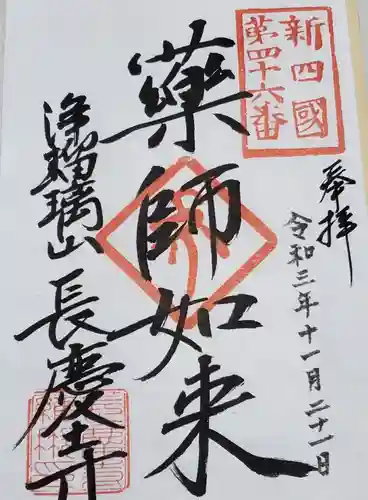 新四國
第四十六番
奉拝
令和三年十一月二十一日
薬師如来
浄瑠璃山
長慶寺